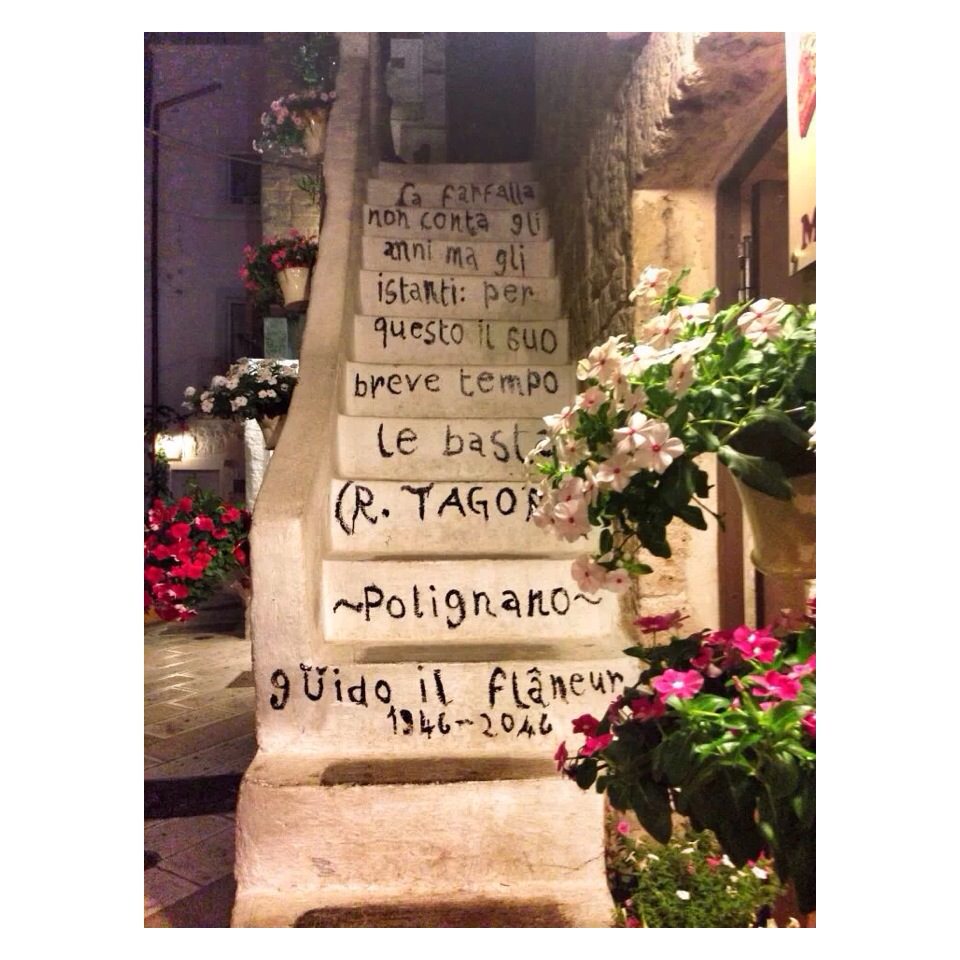 la farfalla
non conta gli
anni ma gli
istanti: per
questo il suo
breve tempo
le basta
(R. TAGOR
~Polignano~
gUido il flâneur
1946-2046
M